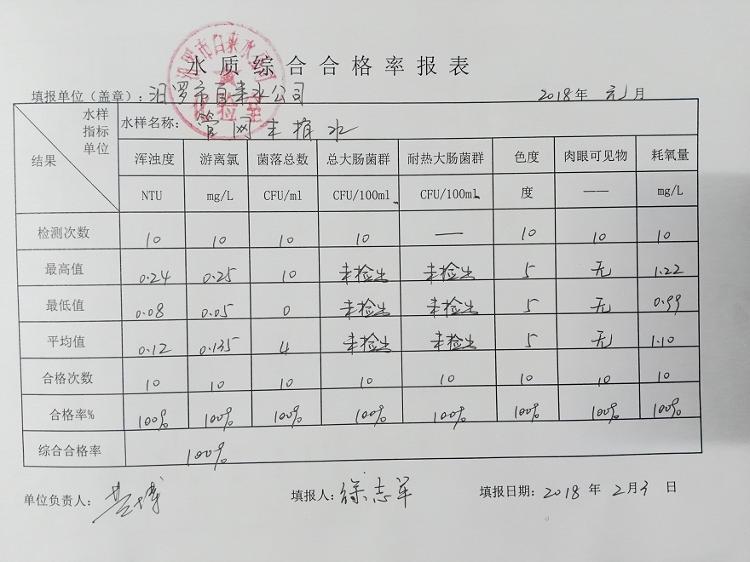 水质综合合格率报表
填报单位（盖章）：汨罗市自来水公司 2018年 元 月
水样 指标 单位 结果
水样名称：管网末梢水
浑浊度 游离氯 菌落总数 总大肠菌群 耐热大肠菌群 色度 肉眼可见物 耗氧量
NTU mg/L CFU/ml CFU/100ml CFU/100ml 度 —— mg/L
检测次数 10 10 10 10 — 10 10 10
最高值 0.24 0.25 10 未检出 未检出 5 无 1.22
最低值 0.08 0.05 0 未检出 未检出 5 无 0.99
平均值 0.12 0.135 4 未检出 未检出 5 无 1.10
合格次数 10 10 10 10 10 10 10 10
合格率% 100% 100% 100% 100% 100% 100% 100% 100%
综合合格率 100%
单位负责人： 填报人：徐志军 填报日期：2018 年 2月3 日